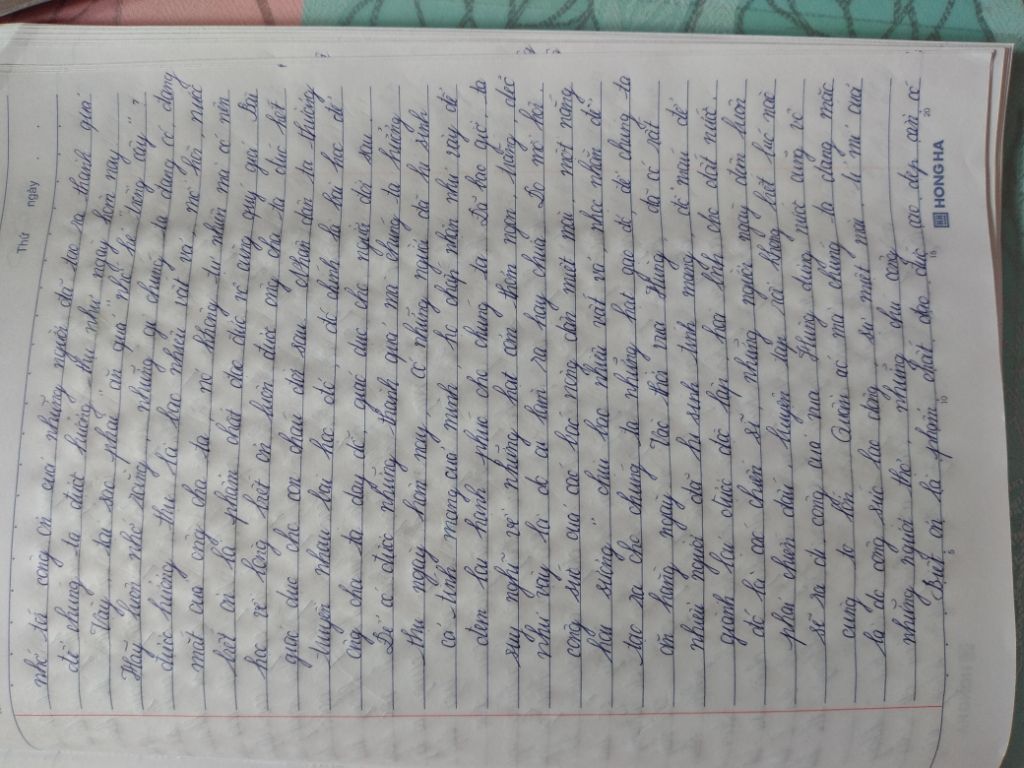 Thứ ngày
nhớ tới công ơn của những người đã tạo ra thành quả
để chúng ta được hưởng thụ như ngày hôm nay.
Vậy tại sao phải " ăn quả nhớ kẻ trồng cây " ?
Hãy luôn nhớ rằng, những gì chúng ta đang có đang
được hưởng thụ là bao nhiêu vất vả, mồ hôi, nước
mắt của ông cha ta, nó không tự nhiên mà có nên
biết ơn là phẩm chất đạo đức vô cùng quý giá. Bài
học về lòng biết ơn luôn được ông cha ta đúc kết
giáo dục cho con cháu đời sau. Nhân dân ta thường
truyền nhau bài học đó, đó chính là bài học để
ông cha ta dạy dỗ, giáo dục cho người đời sau.
Để có được những thành quả mà chúng ta hưởng
thụ ngày hôm nay, có những người đã hi sinh
cả tính mạng của mình, họ chấp nhận như vậy để
đem lại hạnh phúc cho chúng ta. Đã bao giờ, ta
suy nghĩ về những hạt cơm thơm ngon, trắng dẻo
như vậy là do ai làm ra hay chưa. Do mồ hôi
công sức của các bác nông dân một mài, một nắng
hai sương " chịu bao nhiêu vất vả nhọc nhằn để
tạo ra cho chúng ta những hạt gạo để, để chúng ta
ăn hàng ngày. Vào thời vua Hùng, đã có rất
nhiều người đã hi sinh tính mạng, đổ máu để
giành lại được độc lập, hoà bình cho đất nước.
đó là các chiến sĩ, những người ngày đêm luôn
phải chiến đấu, luyện tập và không biết lúc nào
sẽ ra đi công của vua Hùng dựng nước cũng vô
cùng to lớn. Quần áo mà chúng ta đang mặc
là do công sức lao động, sự miệt mài, tỉ mỉ của
những người thợ, những chú công
Biết ơn là phẩm chất đạo đức cao đẹp cần có
5 10 15 20
HONG HA